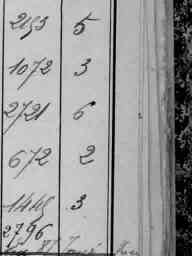 2193 5
1072 3
2721 6
672 2
1449 3
2796